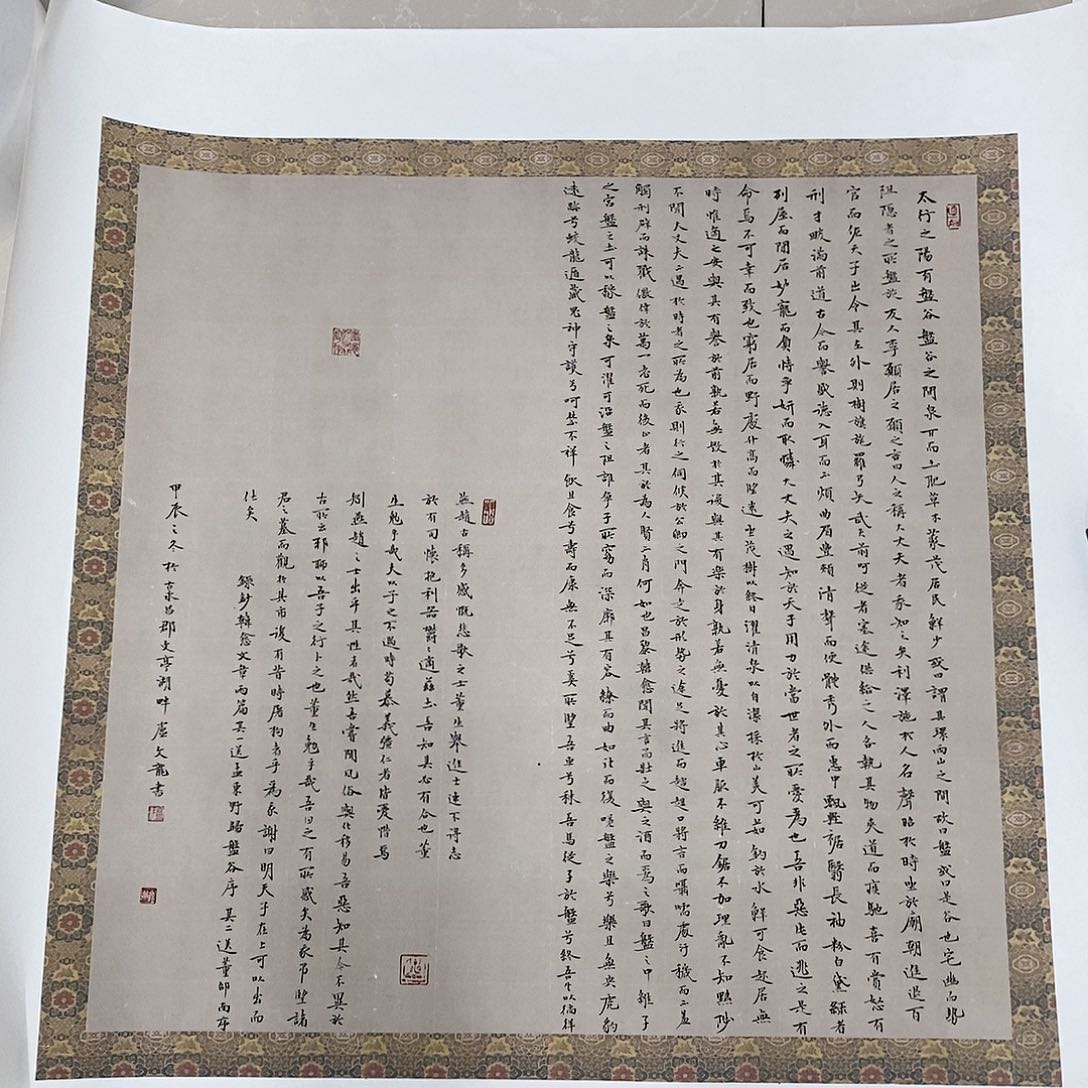 太行之陽有盤谷盤谷之間泉甘而土肥草木叢茂居民鮮少或曰謂其環兩山之間故曰盤或曰是谷也宅幽而勢
阻隱者之所盤旋友人李願居之願之言曰人之稱大丈夫者我知之矣利澤施於人名聲昭於時坐於廟朝進退百
官而佐天子出令其在外則樹旗旄羅弓矢武夫前呵從者塞途供給之人各執其物夾道而疾馳喜有賞怒有
刑才畯滿前道古今而譽盛德入耳而不煩曲眉豐頰清聲而便體秀外而惠中飄輕裾翳長袖粉白黛綠者
列屋而閒居妒寵而負恃爭妍而取憐大丈夫之遇知於天子用力於當世者之所為也吾非惡此而逃之是有
命焉不可幸而致也窮居而野處升高而望遠坐茂樹以終日濯清泉以自潔採於山美可茹釣於水鮮可食起居無
時惟適之安與其有譽於前孰若無毀於其後與其有樂於身孰若無憂於其心車服不維刀鋸不加理亂不知黜陟
不聞大丈夫不遇於時者之所為也我則行之伺候於公卿之門奔走於形勢之途足將進而趑趄口將言而囁嚅處污穢而不羞
觸刑辟而誅戮徼倖於萬一老死而後止者其於為人賢不肖何如也昌黎韓愈聞其言而壯之與之酒而為之歌曰盤之中維子
之宮盤之土可以稼盤之泉可濯可沿盤之阻誰爭子所窈而深廓其有容繚而曲如往而復嗟盤之樂兮樂且無央虎豹
遠跡兮蛟龍遁藏鬼神守護兮呵禁不祥飲且食兮壽而康無不足兮奚所望吾車兮秣吾馬從子於盤兮終吾生以徜徉
燕趙古稱多感慨悲歌之士董生舉進士連不得志
於有司懷抱利器鬱鬱適茲土吾知其必有合也董
生勉乎哉夫以子之不遇時苟慕義彊仁者皆愛惜焉
矧燕趙之士出乎其性者哉然吾嘗聞風俗與化移易吾惡知其今不異於
古所云邪聊以吾子之行卜之也董生勉乎哉吾因之有所感矣為我弔望諸
君之墓而觀於其市復有昔時屠狗者乎為我謝曰明天子在上可以出而
仕矣
錄鈔韓愈文章兩篇其一送孟東野歸盤谷序其二送董邵南序
甲辰之冬於京昌郡文亭湖畔盧文龍書